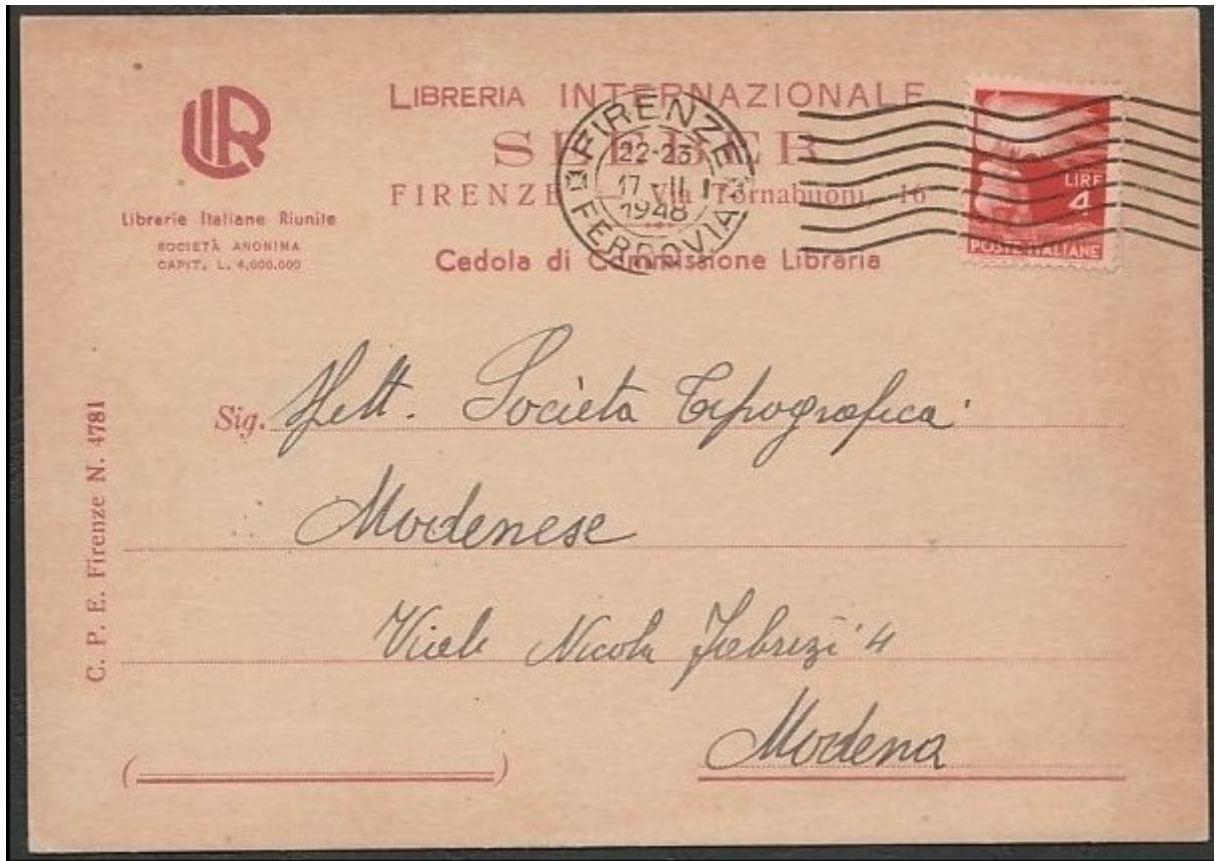 LIR
Librerie Italiane Riunite
SOCIETÀ ANONIMA
CAPIT. L. 4,000.000
LIBRERIA INTERNAZIONALE
SEEBER
FIRENZE — Via Tornabuoni, 16
Cedola di Commissione Libraria
FIRENZE
22-23
17 - VII
1948
FERROVIA
LIRE
4
POSTE ITALIANE
C. P. E. Firenze N. 4781
Sig. Spett. Società Tipografica
Modenese
Viale Nicola Fabrizi 4
Modena